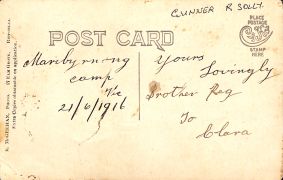 GUNNER R SOLLY
POST CARD
PLACE
POSTAGE
STAMP
HERE
Maribyrnong
camp
Vic
21/6/1916
Yours
Lovingly
Brother Reg
To
Clara